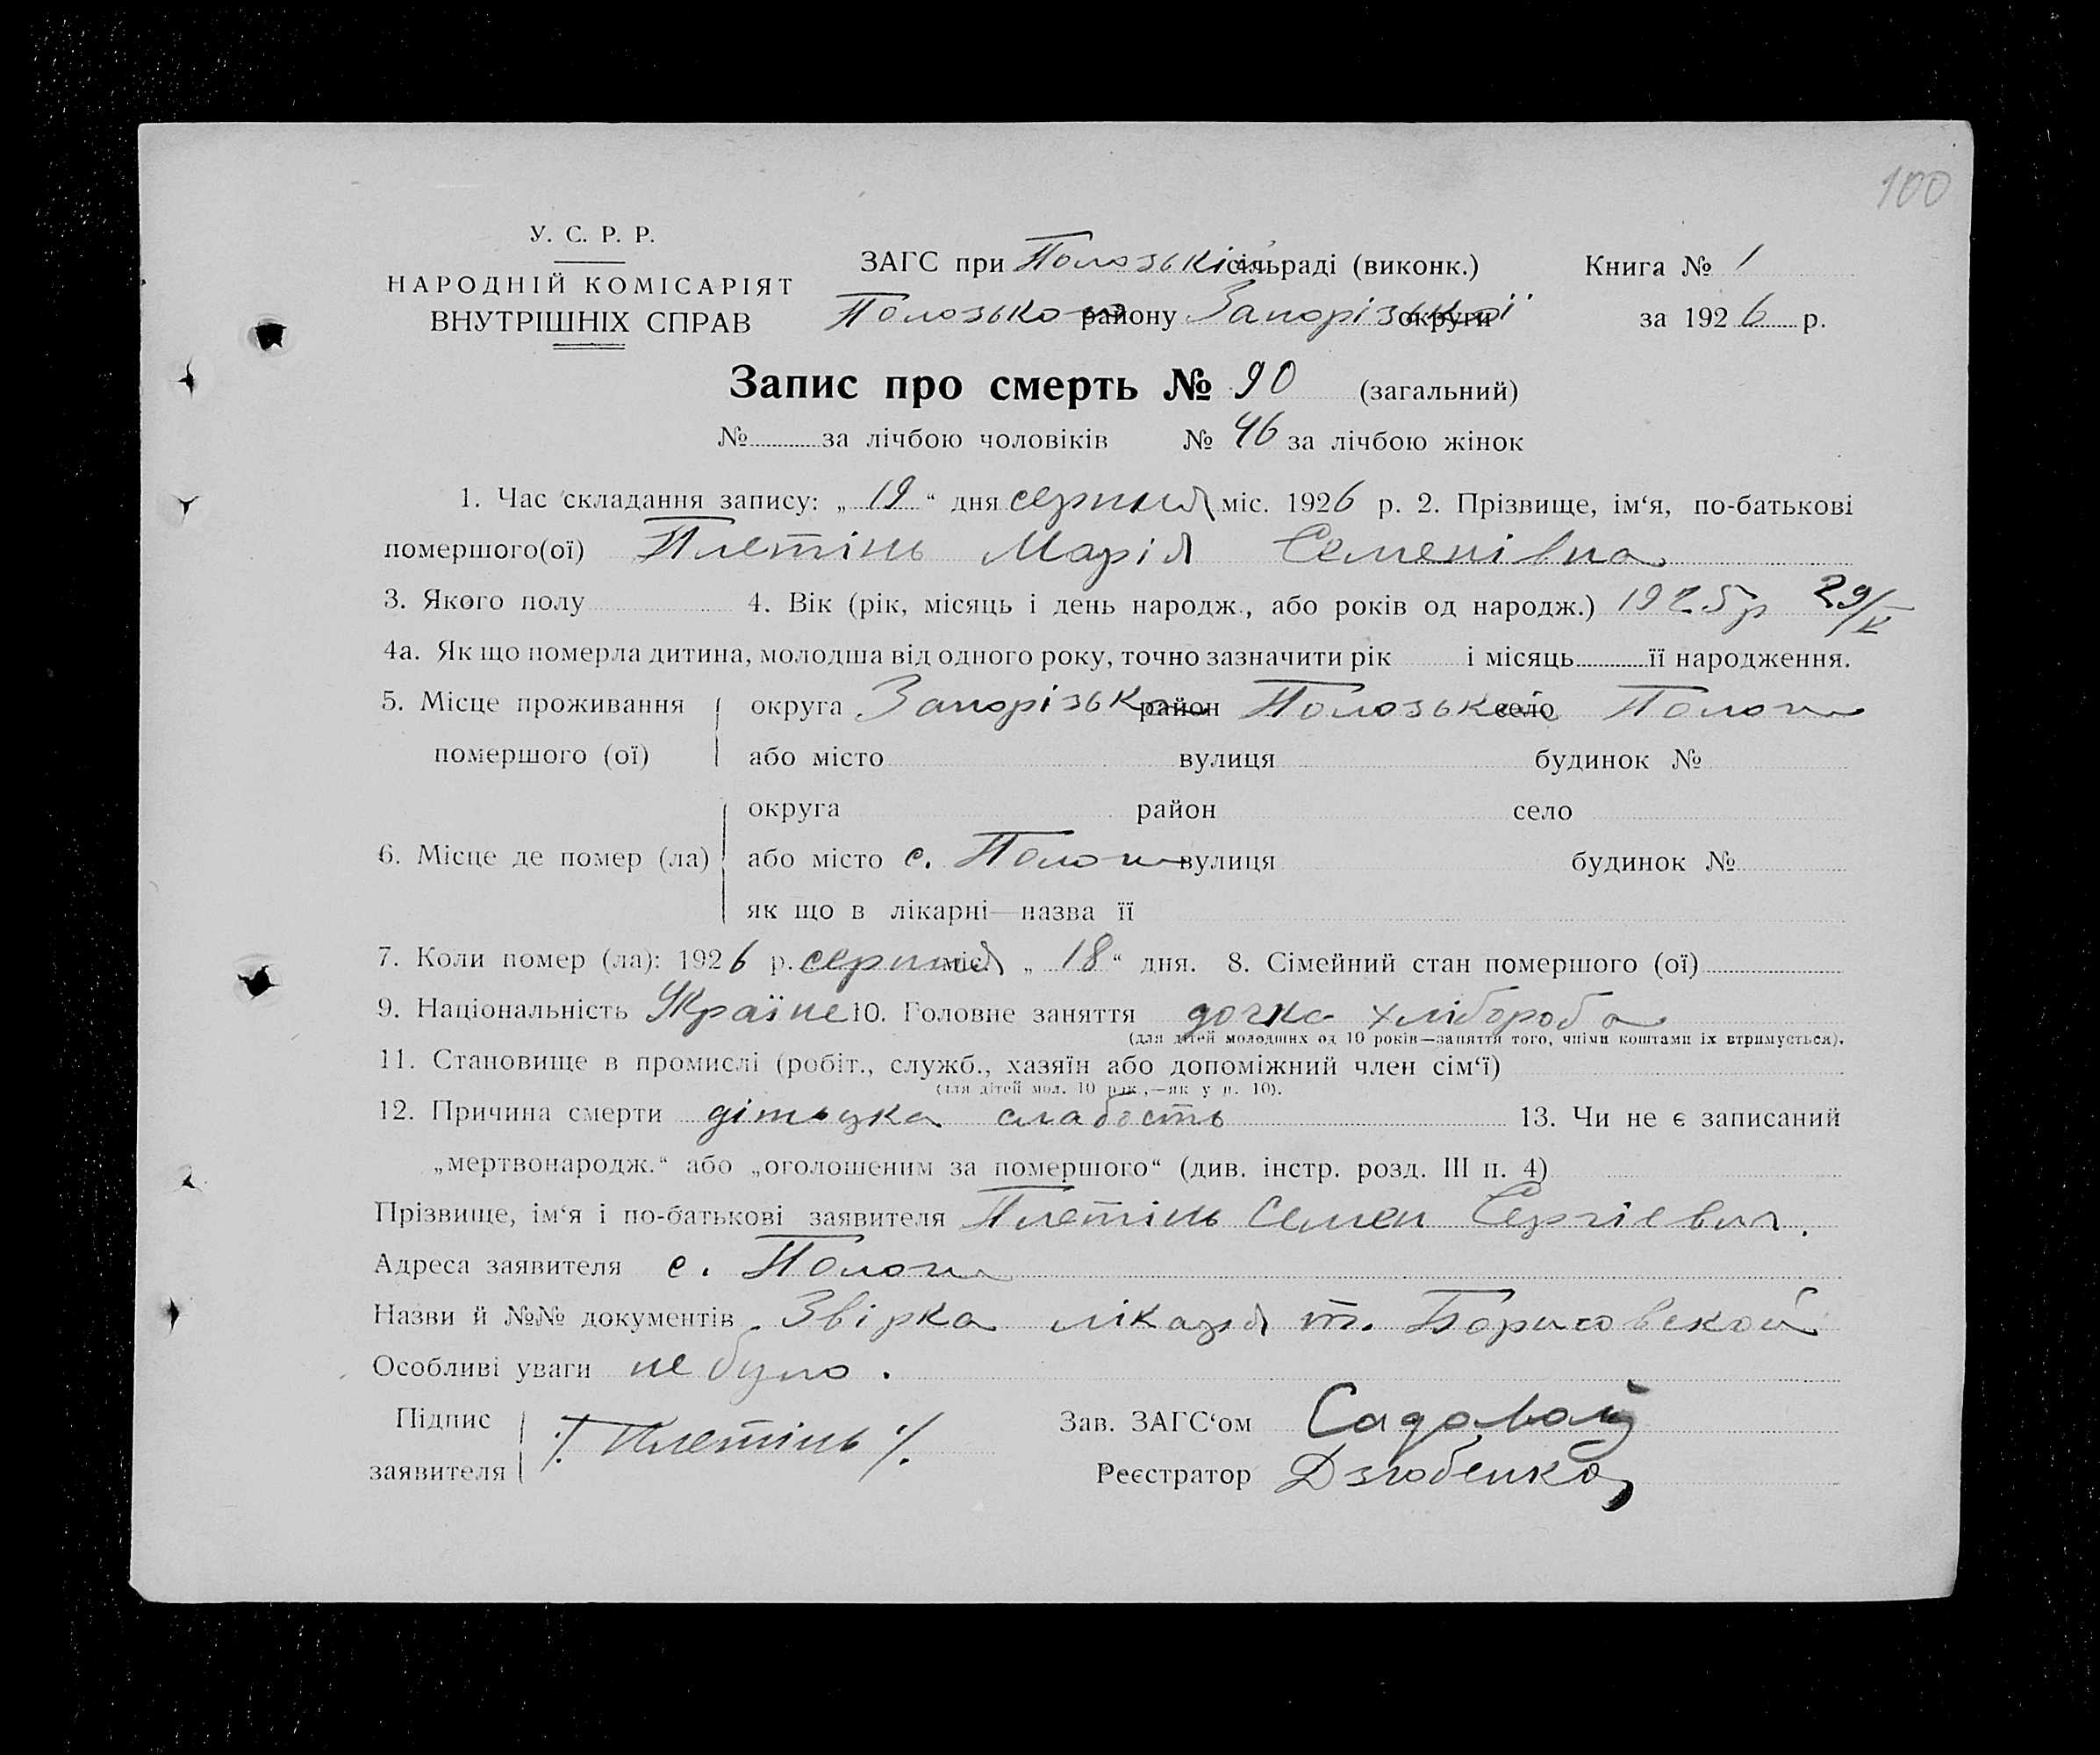 100
У. С. Р. Р.
НАРОДНІЙ КОМІСАРІЯТ
ВНУТРІШНІХ СПРАВ
ЗАГС при Полозькій сільраді (виконк.)
Полозького району Запорізької округи
Книга № 1
за 1926 р.
Запис про смерть № 90 (загальний)
№ за лічбою чоловіків № 46 за лічбою жінок
1. Час складання запису: „19“ дня серпня міс. 1926 р. 2. Прізвище, ім‘я, по-батькові
помершого(ої) Плетінь Марія Семенівна
3. Якого полу 4. Вік (рік, місяць і день народж., або років од народж.) 1925р 29/V
4а. Як що померла дитина, молодша від одного року, точно зазначити рік і місяць її народження.
5. Місце проживання помершого (ої) округа Запорізька район Полозький село Пологи
або місто вулиця будинок №
6. Місце де помер (ла) округа район село
або місто с. Пологи вулиця будинок №
як що в лікарні—назва її
7. Коли помер (ла): 1926 р. серпня міс. „18“ дня. 8. Сімейний стан помершого (ої)
9. Національність Україне 10. Головне заняття дочка хлібороба
(для дітей молодших од 10 років—заняття того, чиїми коштами їх втримується).
11. Становище в промислі (робіт., служб., хазяїн або допоміжний член сім‘ї)
(для дітей мол. 10 рок.,—як у п. 10).
12. Причина смерти дітьцка слабость 13. Чи не є записаний
„мертвонародж.“ або „оголошеним за помершого“ (див. інстр. розд. III п. 4)
Прізвище, ім‘я і по-батькові заявителя Плетінь Семен Сергієвич.
Адреса заявителя с. Пологи
Назви й №№ документів Звірка лікаря т. Борисовской
Особливі уваги не було.
Підпис заявителя /Плетінь/
Зав. ЗАГС‘ом Садовой
Реєстратор Дзюбенко